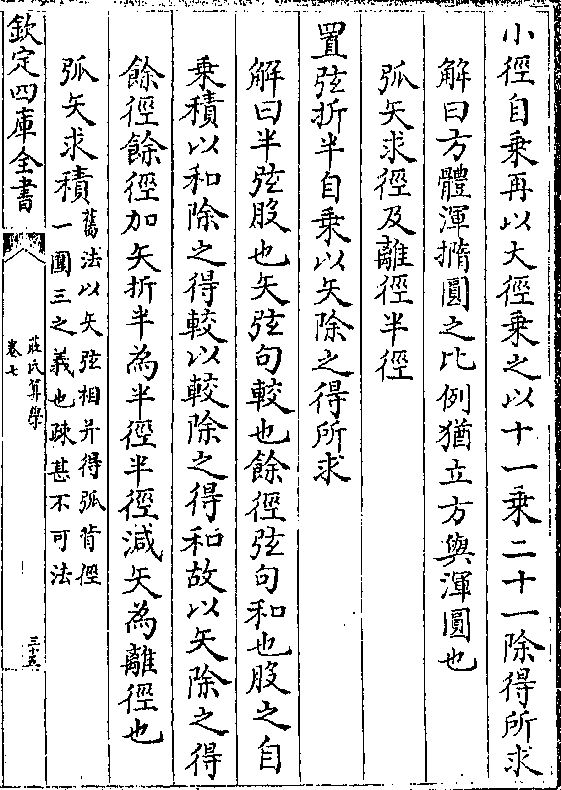 小徑自乗再以大徑乗之以十一乗二十一除得所求
解曰方體渾撱圓之比例猶立方與渾圓也
弧矢求徑及離徑半徑
置弦折半自乗以矢除之得所求
解曰半弦股也矢弦句較也餘徑弦句和也股之自
乗積以和除之得較以較除之得和故以矢除之得
餘徑餘徑加矢折半為半徑半徑減矢為離徑也
弧矢求積
舊法以矢弦相并得弧背徑
一圍三之義也疎甚不可法
欽定四庫全書
莊氏算學
卷七
三十五